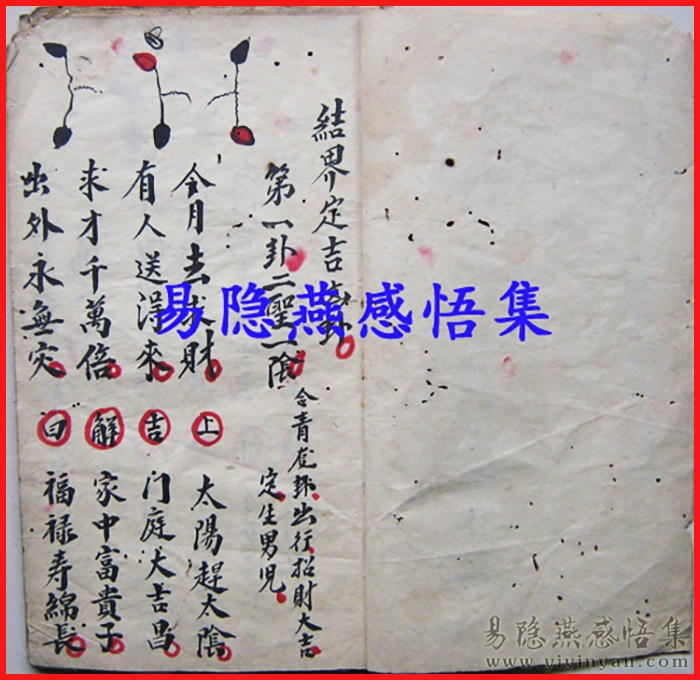 結界定吉卦
第一卦二聖一陰
合青龙卦出行招財大吉
定生男児
今月去求財 上 太陽趕太陰
有人送得來 吉 门庭大吉昌
求才千萬倍 解 家中富貴子
出外永無灾 曰 福禄寿綿長
易隐燕感悟集
易隐燕感悟集
www.yiyinyan.com